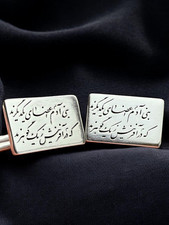 بنی آدم اعضای یکدیگرند
که در آفرینش ز یک گوهرند
بنی آدم اعضای یکدیگرند
که در آفرینش ز یک گوهرند